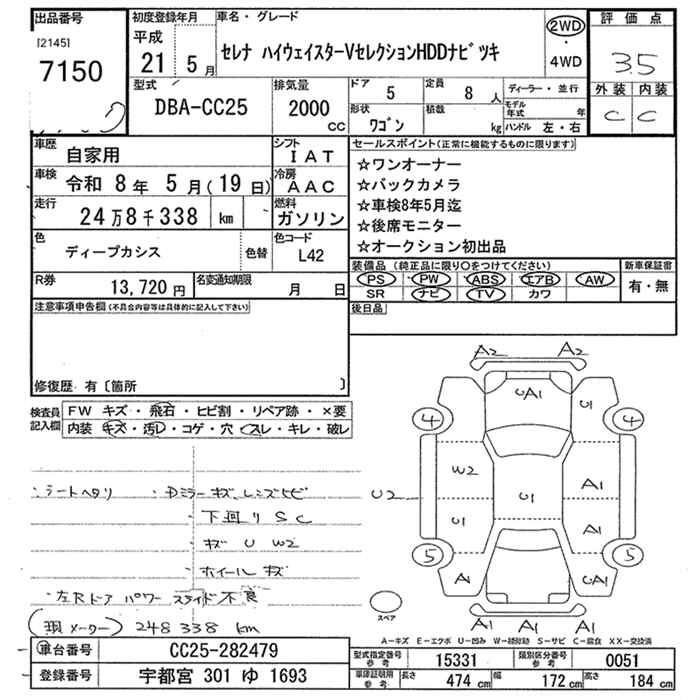 出品番号
[2145]
7150
初度登録年月
平成
21年 5月
車名・グレード
セレナ ハイウェイスターVセレクションHDDナビツキ
2WD
・
4WD
評価点
3.5
外装 内装
C C
型式
DBA-CC25
排気量
2000
CC
ドア
5
定員
8 人
形状
ワゴン
積載
kg
ディーラー・並行
モデル年式 年
ハンドル 左・右
車歴
自家用
車検 令和 8年 5月(19日)
走行
24万8千338 km
色
ディープカシス
色替
シフト
IAT
冷房
AAC
燃料
ガソリン
色コード
L42
R券
13,720円
名変通知期限
月 日
セールスポイント(正常に機能するものに限ります)
☆ワンオーナー
☆バックカメラ
☆車検8年5月迄
☆後席モニター
☆オークション初出品
装備品 (純正品に限り○をつけてください)
PS PW ABS エアB AW
SR ナビ TV カワ
新車保証書
有・無
後日品
注意事項申告欄(不具合内容等は具体的に記入して下さい)
修復歴 有〔箇所 〕
検査員
記入欄
FW キズ・飛石・ヒビ割・リペア跡・×要
内装 キズ・汚レ・コゲ・穴・スレ・キレ・破レ
・シートヘタリ ・Dミラーキズ、レンズヒビ
・下廻りSC
・キズ U W2
・ホイールキズ
・左Rドア パワースライド不良
(現メーター) 248338 km
A2 A2
UA1
U1
4 4
W2
A1
U2
U1
U1
A1
5 5
A1
UA1
A1 A1
スペア
A1
A－キズ E－エクボ U－凹み W－補修跡 S－サビ C－腐食 XX－交換済
車台番号
CC25-282479
登録番号
宇都宮 301 ゆ 1693
型式指定番号
参考
15331
類別区分番号
参考
0051
車庫証明用
参考
長さ
474 cm
幅
172 cm
高さ
184 cm